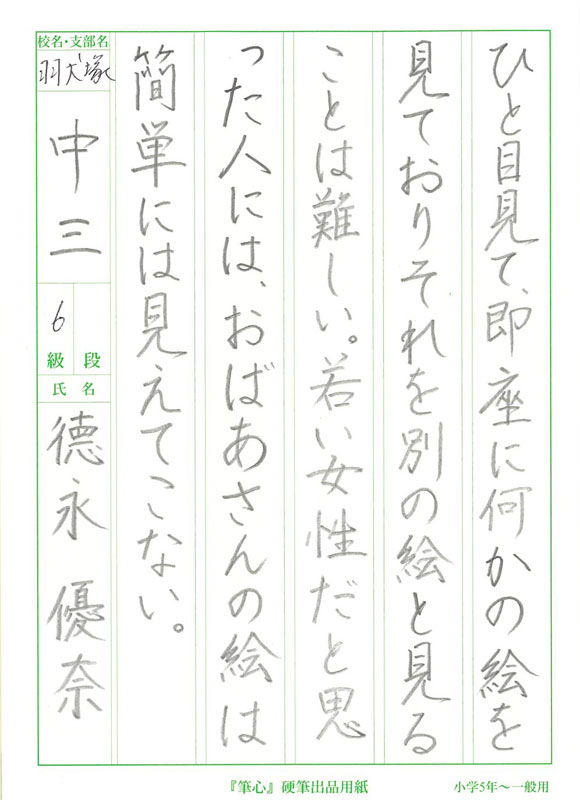 ひと目見て、即座に何かの絵を
見ておりそれを別の絵と見る
ことは難しい。若い女性だと思
った人には、おばあさんの絵は
簡単には見えてこない。
校名・支部名
羽犬塚
中三
6
級 段
氏 名
徳永 優奈
『筆心』硬筆出品用紙
小学5年～一般用